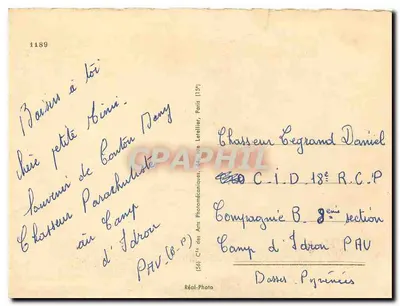 1189
Baisers à toi
chère petite Mimi.
Souvenir de Tonton Dany
Chasseur Parachutiste
au Camp
d'Idron
PAU (B-P)
(56) Cie des Arts Photomécaniques, Letellier, Paris (15e)
Réal-Photo
CPHIL
Chasseur Legrand Daniel
C.I.D 18e R.C.P
Compagnie B 3ème section
Camp d'Idron PAU
Basses Pyrénées